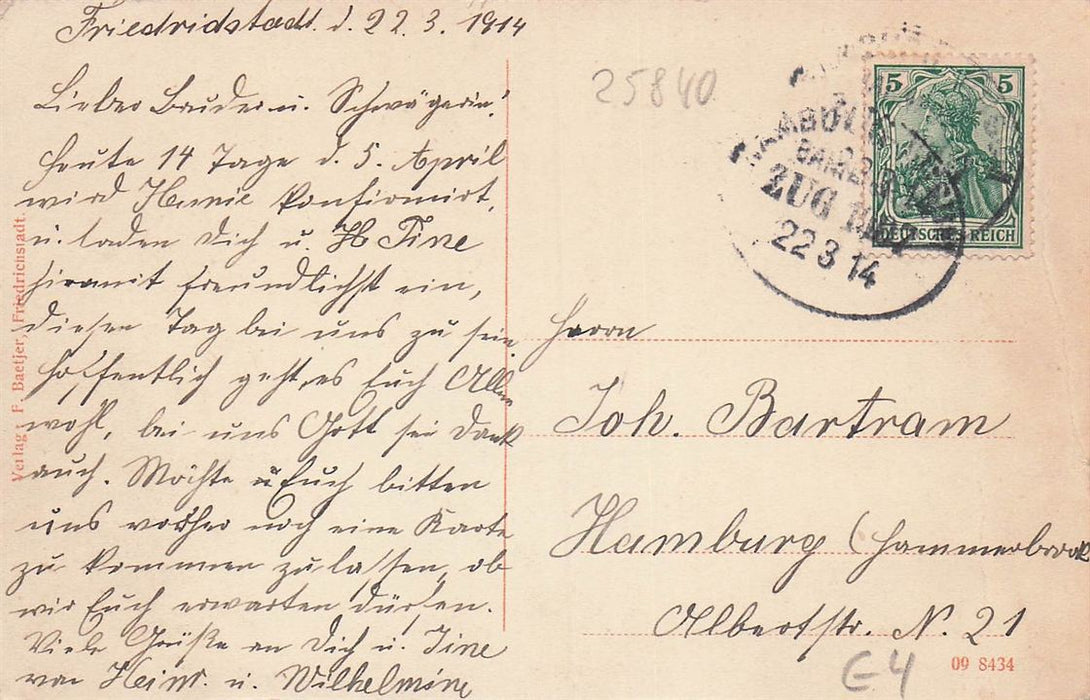 Friedrichstadt. d. 22. 3. 1914
Lieber Bruder u. Schwägerin!
Heute 14 Tage d. 5. April
wird Hennie konfirmirt,
u. laden Dich u. Tine
hiermit freundlichst ein,
diesen Tag bei uns zu sein
hoffentlich geht es Euch Allen
wohl, bei uns Gott sei Dank
auch. Möchte Euch bitten
uns vorher noch eine Karte
zu kommen zu lassen, ob
wir Euch erwarten dürfen.
Viele Grüße an Dich u. Tine
von Heinr. u. Wilhelmine
Verlag: F. Baetjer, Friedrichstadt.
25840
5 5
DEUTSCHES REICH
ZUG
22 3 14
Herrn
Joh. Bartram
Hamburg (Hammerbrook
Albertstr. N. 21
E4
09 8434